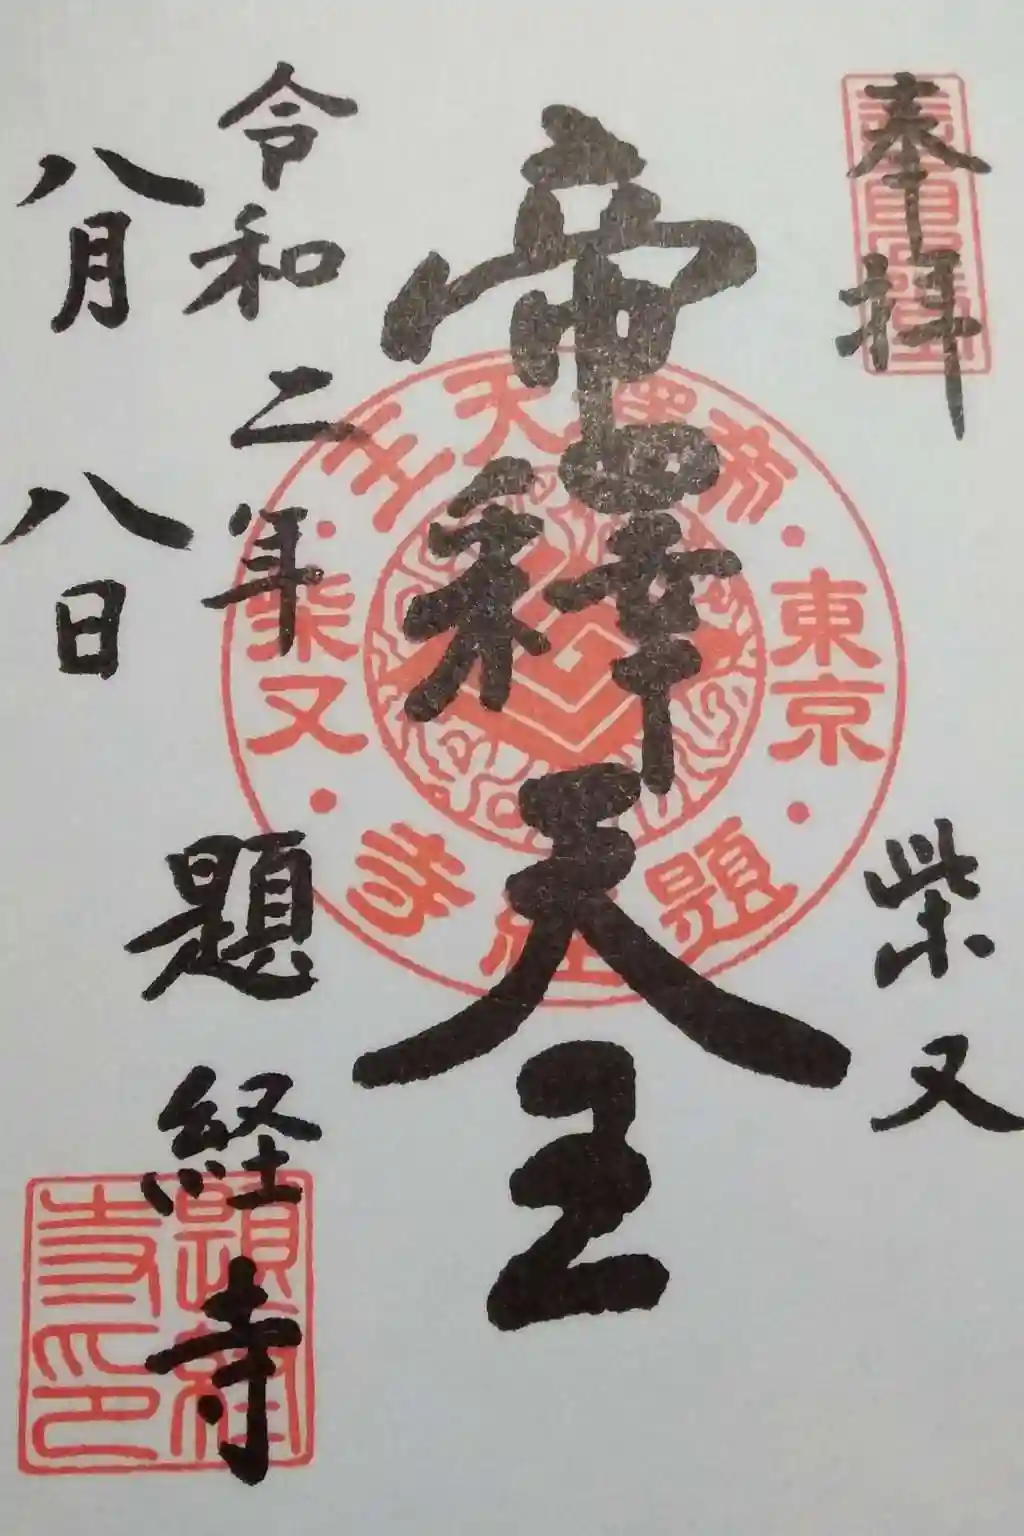 奉拝
柴又
帝釋天王
令和二年
八月八日
題経寺
帝釋天王
東京
柴又
題経寺
題経寺印